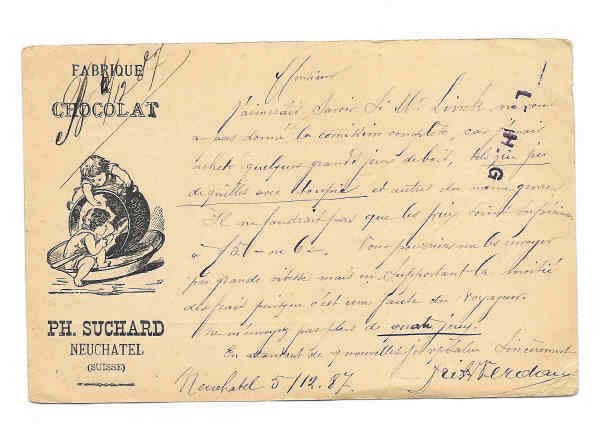 FABRIQUE
CHOCOLAT
PH. SUCHARD
NEUCHATEL
(SUISSE)
Monsieur
J'aimerais savoir si Mr. Linck ne vous
a pas donné la comission car j'avais
acheté quelques grands jeux de bois, tels que jeu
de quilles avec toupie et autres du même genre
Il ne faudrait pas que les prix soient
à 15 – ne Vous pourriez me les envoyer
par grande vitesse mais en supportant la moitié
des frais puisque c'est une faute du voyageur
ne m'envoyez pas plus de jeux.
En attendant de vos nouvelles je vous salue sincèrement
Neuchatel 5/12.87.
L. H. G